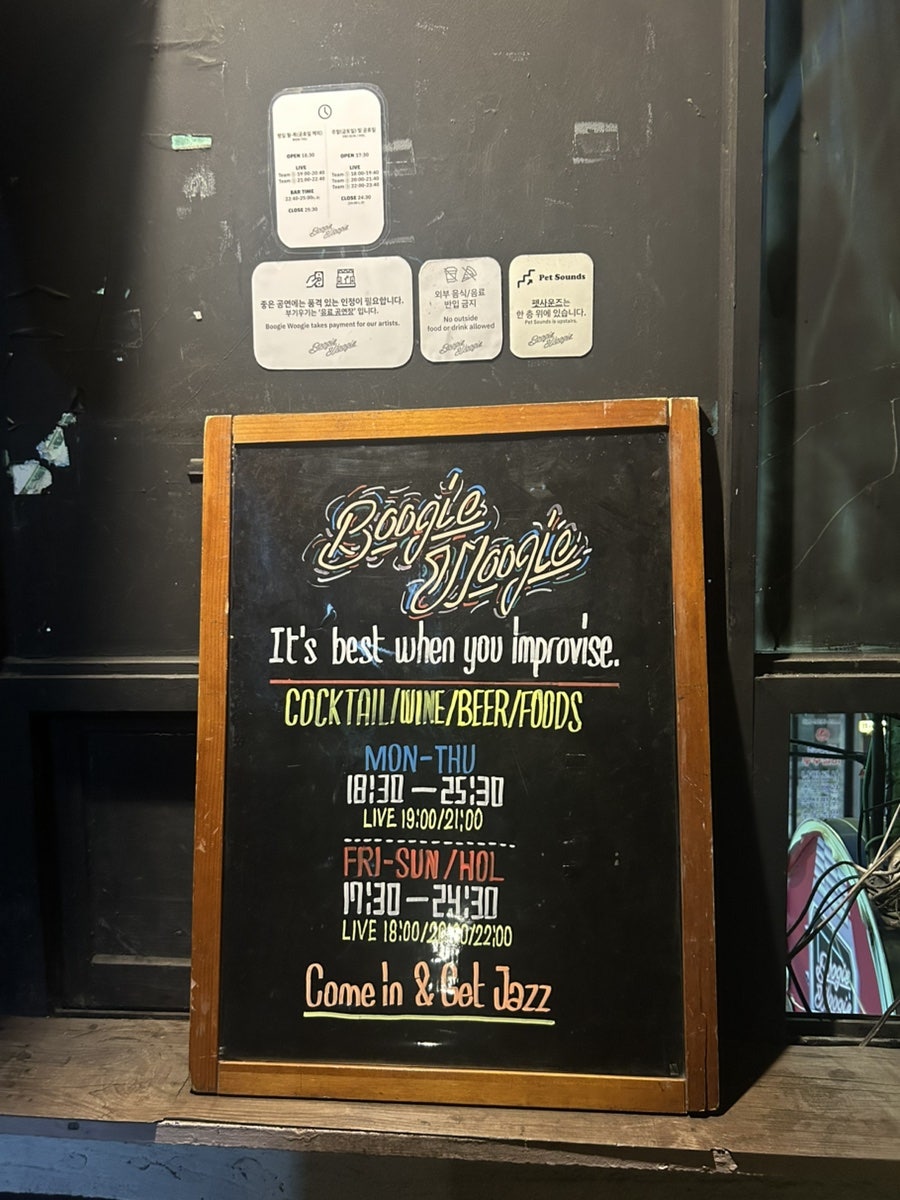 평일 월-목(공휴일 제외)
MON-THU
OPEN 18:30
LIVE
Team ① 19:00-20:40
Team ② 21:00-22:40
BAR TIME
CLOSE 25:30
주말(금토일) 및 공휴일
OPEN 17:30
LIVE
Team ① 18:00-19:40
Team ② 20:00-21:40
Team ③ 22:00-23:40
CLOSE 24:30
Boogie
Woogie
좋은 공연에는 품격 있는 인정이 필요합니다.
부기우기는 '유료 공연장' 입니다.
Boogie Woogie takes payment for our artists.
Boogie
Woogie
외부 음식/음료
반입 금지
No outside
food or drink allowed
Boogie
Woogie
Pet Sounds
펫사운즈는
한 층 위에 있습니다.
Pet Sounds is upstairs.
Boogie
Woogie
Boogie
Woogie
It's best when you improvise.
COCKTAIL/WINE/BEER/FOODS
MON-THU
18:30 — 25:30
LIVE 19:00/21:00
FRI-SUN/HOL
17:30 — 24:30
LIVE 18:00/20:00/22:00
Come in & Get Jazz